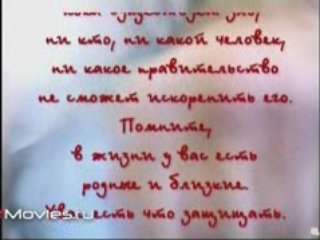 пока существует зло,
ни кто, ни какой человек,
ни какое правительство
не сможет искоренить его.
Помните,
в жизни у вас есть
родные и близкие.
есть что защищать.
Movies.ru